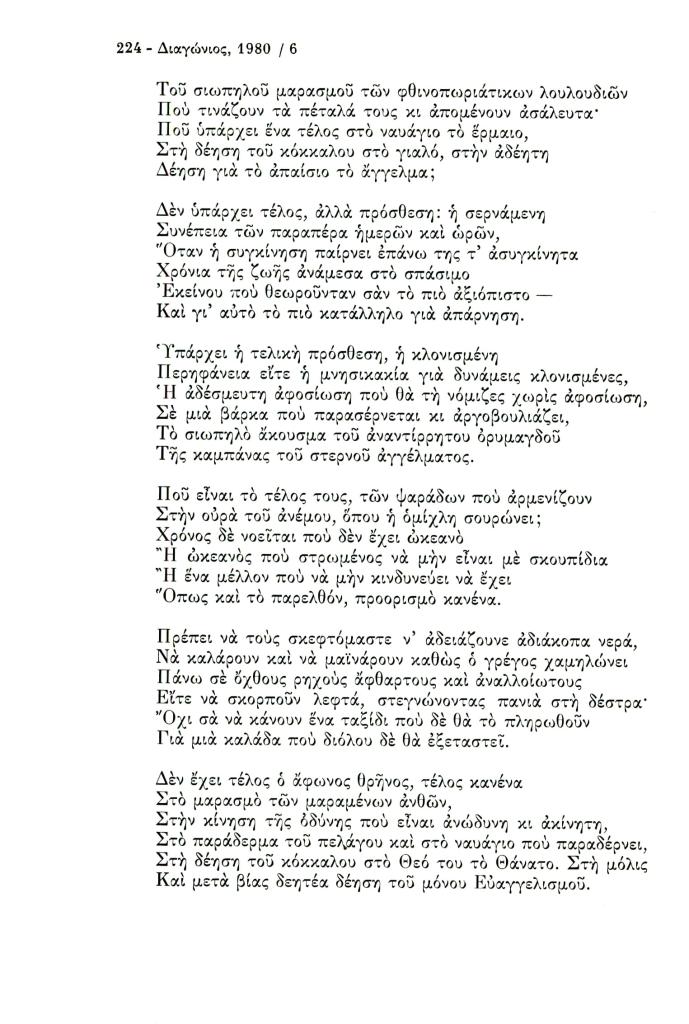 224 - Διαγώνιος, 1980 / 6
Τοῦ σιωπηλοῦ μαρασμοῦ τῶν φθινοπωριάτικων λουλουδιῶν
Ποὺ τινάζουν τὰ πέταλά τους κι ἀπομένουν ἀσάλευτα·
Ποῦ ὑπάρχει ἕνα τέλος στὸ ναυάγιο τὸ ἕρμαιο,
Στὴ δέηση τοῦ κόκκαλου στὸ γιαλό, στὴν ἀδέητη
Δέηση γιὰ τὸ ἀπαίσιο τὸ ἄγγελμα;
Δὲν ὑπάρχει τέλος, ἀλλὰ πρόσθεση: ἡ σερνάμενη
Συνέπεια τῶν παραπέρα ἡμερῶν καὶ ὡρῶν,
Ὅταν ἡ συγκίνηση παίρνει ἐπάνω της τ’ ἀσυγκίνητα
Χρόνια τῆς ζωῆς ἀνάμεσα στὸ σπάσιμο
Ἐκείνου ποὺ θεωροῦνταν σὰν τὸ πιὸ ἀξιόπιστο —
Καὶ γι’ αὐτὸ τὸ πιὸ κατάλληλο γιὰ ἀπάρνηση.
Ὑπάρχει ἡ τελικὴ πρόσθεση, ἡ κλονισμένη
Περηφάνεια εἴτε ἡ μνησικακία γιὰ δυνάμεις κλονισμένες,
Ἡ ἀδέσμευτη ἀφοσίωση ποὺ θὰ τὴ νόμιζες χωρὶς ἀφοσίωση,
Σὲ μιὰ βάρκα ποὺ παρασέρνεται κι ἀργοβουλιάζει,
Τὸ σιωπηλὸ ἄκουσμα τοῦ ἀναντίρρητου ὀρυμαγδοῦ
Τῆς καμπάνας τοῦ στερνοῦ ἀγγέλματος.
Ποῦ εἶναι τὸ τέλος τους, τῶν ψαράδων ποὺ ἀρμενίζουν
Στὴν οὐρὰ τοῦ ἀνέμου, ὅπου ἡ ὁμίχλη σουρώνει;
Χρόνος δὲ νοεῖται ποὺ δὲν ἔχει ὠκεανὸ
Ἢ ὠκεανὸς ποὺ στρωμένος νὰ μὴν εἶναι μὲ σκουπίδια
Ἢ ἕνα μέλλον ποὺ νὰ μὴν κινδυνεύει νὰ ἔχει
Ὅπως καὶ τὸ παρελθόν, προορισμὸ κανένα.
Πρέπει νὰ τοὺς σκεφτόμαστε ν’ ἀδειάζουνε ἀδιάκοπα νερά,
Νὰ καλάρουν καὶ νὰ μαϊνάρουν καθὼς ὁ γρέγος χαμηλώνει
Πάνω σὲ ὄχθους ρηχοὺς ἄφθαρτους καὶ ἀναλλοίωτους
Εἴτε νὰ σκορποῦν λεφτά, στεγνώνοντας πανιὰ στὴ δέστρα·
Ὄχι σὰ νὰ κάνουν ἕνα ταξίδι ποὺ δὲ θὰ τὸ πληρωθοῦν
Γιὰ μιὰ καλάδα ποὺ διόλου δὲ θὰ ἐξεταστεῖ.
Δὲν ἔχει τέλος ὁ ἄφωνος θρῆνος, τέλος κανένα
Στὸ μαρασμὸ τῶν μαραμένων ἀνθῶν,
Στὴν κίνηση τῆς ὀδύνης ποὺ εἶναι ἀνώδυνη κι ἀκίνητη,
Στὸ παράδερμα τοῦ πελάγου καὶ στὸ ναυάγιο ποὺ παραδέρνει,
Στὴ δέηση τοῦ κόκκαλου στὸ Θεό του τὸ Θάνατο. Στὴ μόλις
Καὶ μετὰ βίας δεητέα δέηση τοῦ μόνου Εὐαγγελισμοῦ.